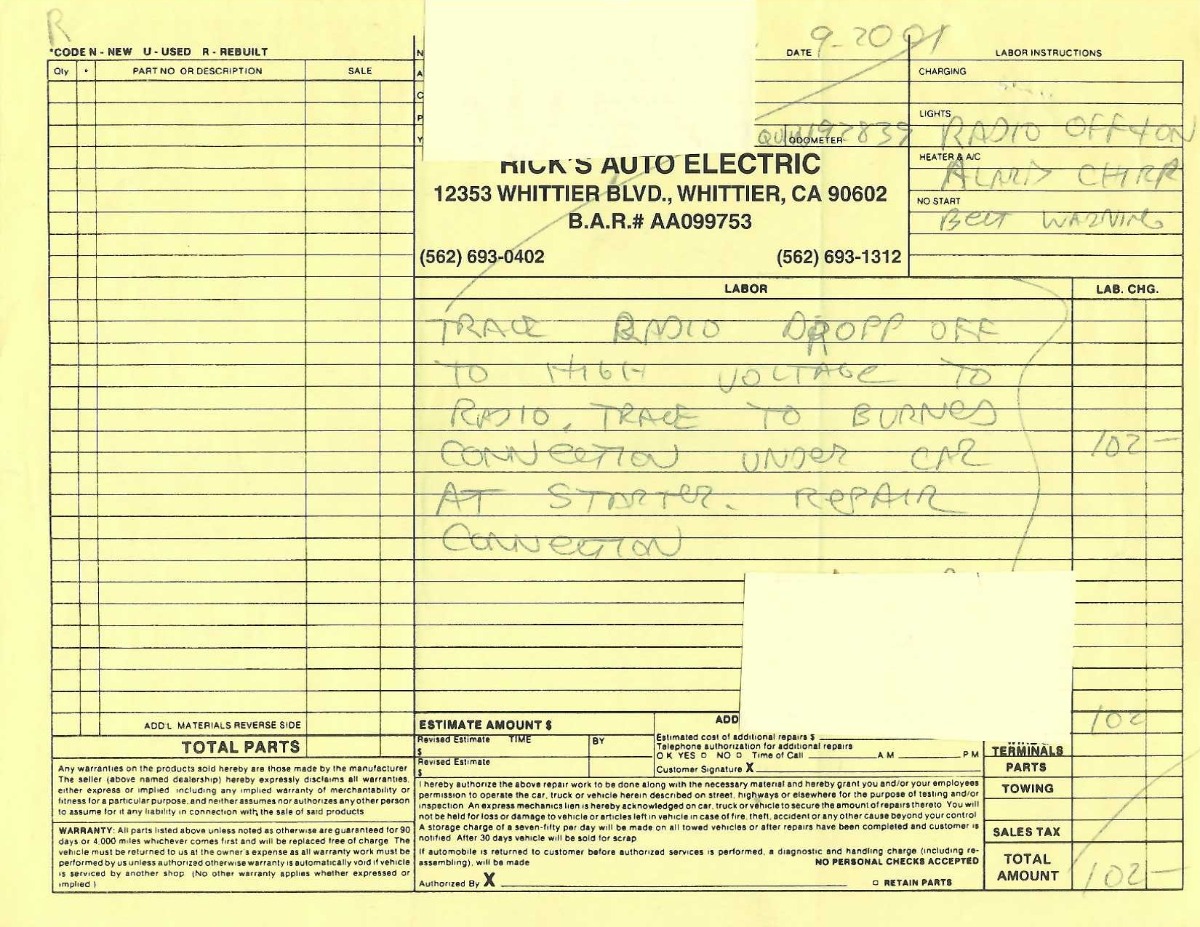 R
*CODE N - NEW U - USED R - REBUILT
Qty * PART NO OR DESCRIPTION SALE
N
A
C
P
Y
DATE 9-20
ODOMETER
LABOR INSTRUCTIONS
CHARGING
LIGHTS RADIO OFF + ON
HEATER & A/C ALARM CHIRP
NO START BELT WARNING
RICK'S AUTO ELECTRIC
12353 WHITTIER BLVD., WHITTIER, CA 90602
B.A.R.# AA099753
(562) 693-0402 (562) 693-1312
LABOR LAB. CHG.
TRACE RADIO DROPP OFF
TO HIGH VOLTAGE TO
RADIO, TRACE TO BURNED
CONNECTION UNDER CAR 102 —
AT STARTER. REPAIR
CONNECTION
ADD'L MATERIALS REVERSE SIDE
TOTAL PARTS
ESTIMATE AMOUNT $
Revised Estimate TIME BY
$
Revised Estimate
$
ADD
Estimated cost of additional repairs $
Telephone authorization for additional repairs
O K YES □ NO □ Time of Call A M P M
Customer Signature X
102
TERMINALS
PARTS
TOWING
SALES TAX
TOTAL AMOUNT 102 —
Any warranties on the products sold hereby are those made by the manufacturer
The seller (above named dealership) hereby expressly disclaims all warranties,
either express or implied including any implied warranty of merchantability or
fitness for a particular purpose, and neither assumes nor authorizes any other person
to assume for it any liability in connection with the sale of said products
WARRANTY: All parts listed above unless noted as otherwise are guaranteed for 90
days or 4,000 miles whichever comes first and will be replaced free of charge. The
vehicle must be returned to us at the owner's expense as all warranty work must be
performed by us unless authorized otherwise warranty is automatically void if vehicle
is serviced by another shop (No other warranty applies whether expressed or
implied)
I hereby authorize the above repair work to be done along with the necessary material and hereby grant you and/or your employees
permission to operate the car, truck or vehicle herein described on street, highways or elsewhere for the purpose of testing and/or
inspection. An express mechanics lien is hereby acknowledged on car, truck or vehicle to secure the amount of repairs thereto. You will
not be held for loss or damage to vehicle or articles left in vehicle in case of fire, theft, accident or any other cause beyond your control
A storage charge of a seven-fifty per day will be made on all towed vehicles or after repairs have been completed and customer is
notified After 30 days vehicle will be sold for scrap
If automobile is returned to customer before authorized services is performed, a diagnostic and handling charge (including re-
assembling), will be made NO PERSONAL CHECKS ACCEPTED
Authorized By X □ RETAIN PARTS